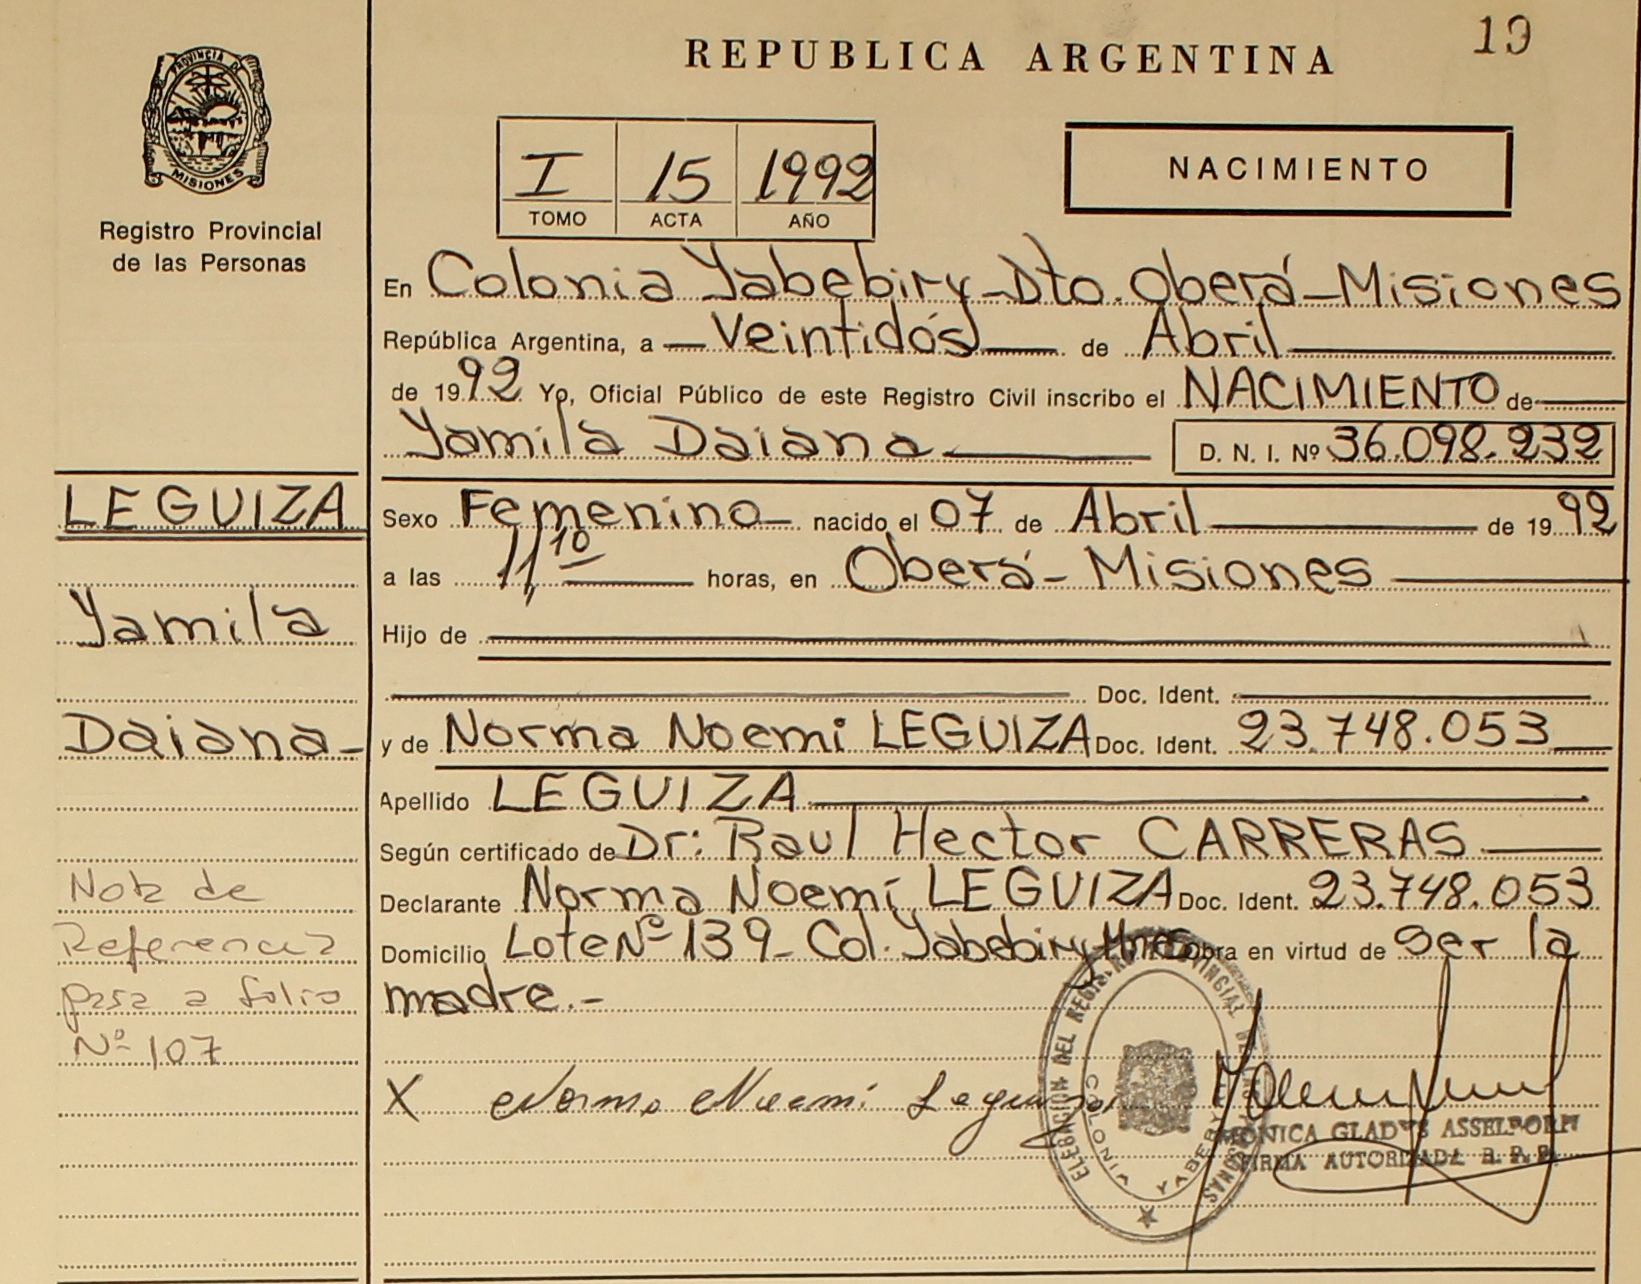 19
REPUBLICA ARGENTINA
PROVINCIA DE
MISIONES
Registro Provincial
de las Personas
I 15 1992
TOMO ACTA AÑO
NACIMIENTO
En Colonia Yabebiry-Dto. Oberá-Misiones
República Argentina, a Veintidós de Abril
de 1992 Yo, Oficial Público de este Registro Civil inscribo el NACIMIENTO de
Yamila Daiana D. N. I. Nº 36.098.232
LEGUIZA
Yamila
Daiana
Nota de
Referencia
pasa a folio
Nº 107
Sexo Femenino nacido el 07 de Abril de 1992
a las 11 10 horas, en Oberá-Misiones
Hijo de
Doc. Ident.
y de Norma Noemi LEGUIZA Doc. Ident. 23.748.053
Apellido LEGUIZA
Según certificado de Dr: Raul Hector CARRERAS
Declarante Norma Noemí LEGUIZA Doc. Ident. 23.748.053
Domicilio Lote Nº 139- Col. Yabebiry Mnes Obra en virtud de ser la
madre.-
X Norma Noemi Leguiza
COLONIA YABEBIRY
MONICA GLADYS ASSELBORN
FIRMA AUTORIZADA R. P. P.